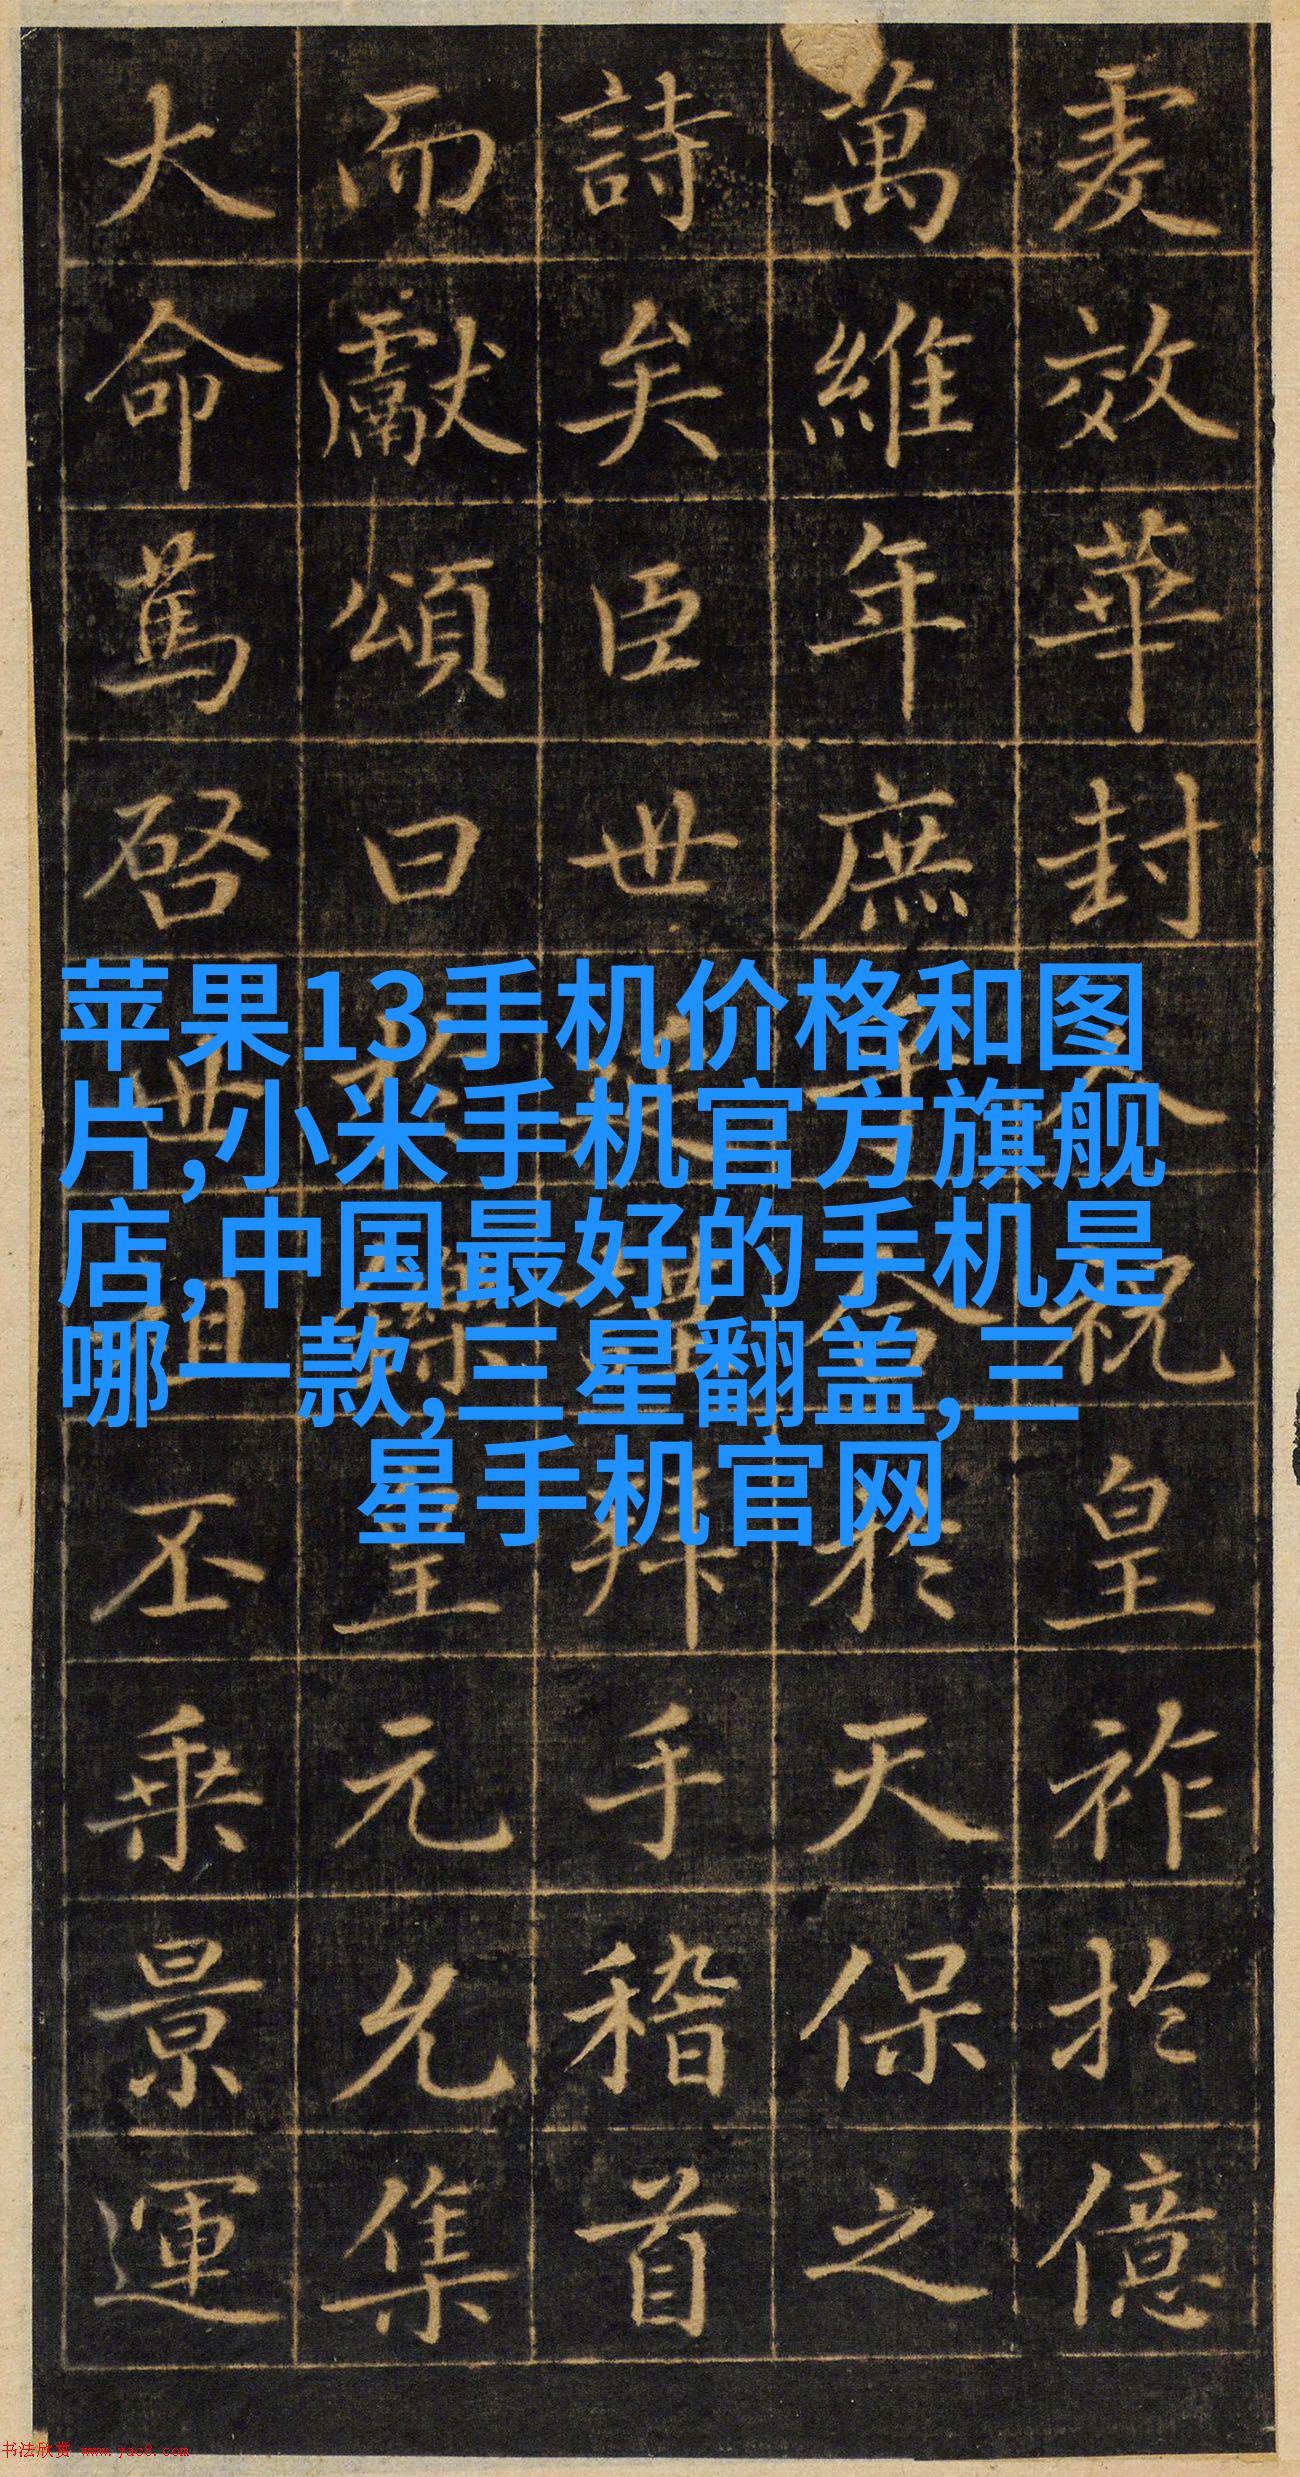 苹果13手机价格和图
片,小米手机官方旗舰
店,中国最好的手机是
哪一款,三星翻盖,三
星手机官网
爰效華封人祝皇祚於億
萬維年庶合於天保之
詩矣臣世拜手稽首
而獻頌曰皇元允集
大命篤啓丕乘景運
书法欣赏 www.yac8.com